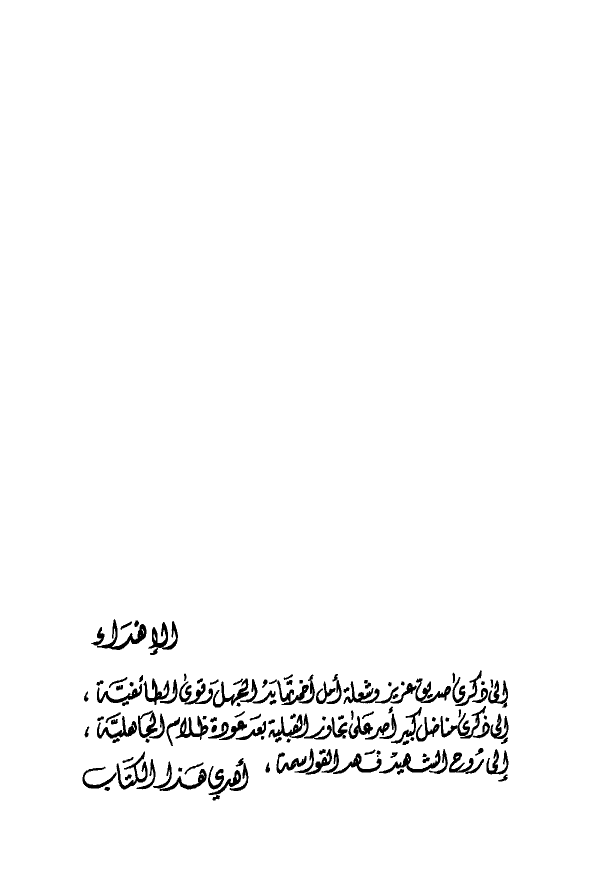 الإهداء
إلى ذكرى صديق عزيز وشعلة أمل أخمدتها يد الجهل وقوى الطائفية ،
إلى ذكرى مناضل كبير أصر على تجاوز القبلية بعد عودة ظلام الجاهلية ،
إلى روح الشهيد فهد القواسمة ،
أهدي هذا الكتاب